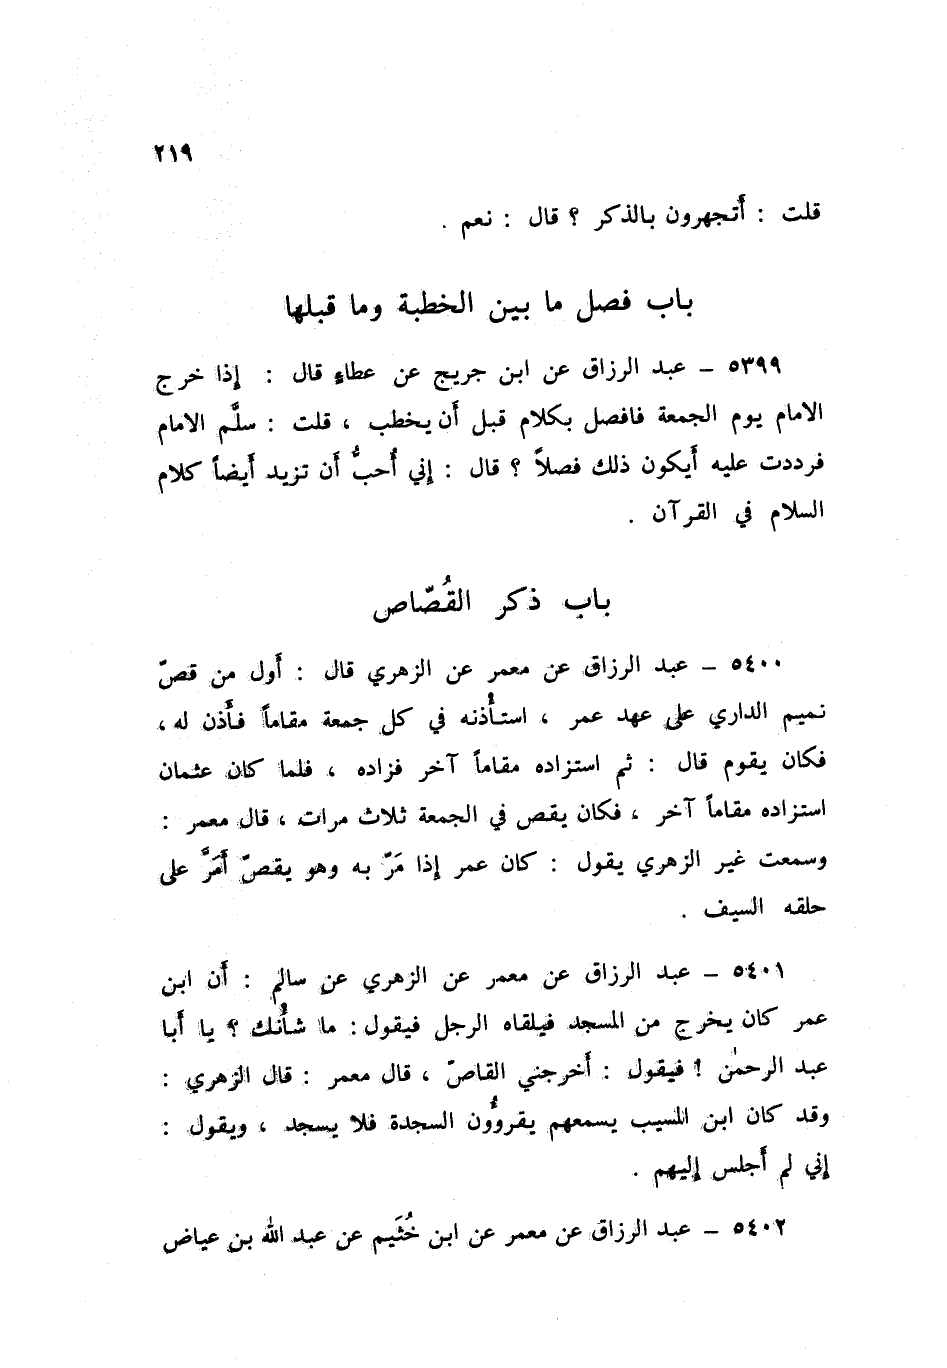 ٢١٩
قلت : أَتجهرون بالذكر ؟ قال : نعم .
باب فصل ما بين الخطبة وما قبلها
٥٣٩٩ – عبد الرزاق عن ابن جريج عن عطاءٍ قال : إِذا خرج
الامام يوم الجمعة فافصل بكلام قبل أَن يخطب ، قلت : سلَّم الامام
فرددت عليه أَيكون ذلك فصلاً ؟ قال : إِني أُحبُّ أَن تزيد أَيضاً كلام
السلام في القرآن .
باب ذكر القُصّاص
٥٤٠٠ – عبد الرزاق عن معمر عن الزهري قال : أَول من قصّ
تميم الداري على عهد عمر ، استأْذنه في كل جمعة مقاماً فأَذن له ،
فكان يقوم قال : ثم استزاده مقاماً آخر فزاده ، فلما كان عثمان
استزاده مقاماً آخر ، فكان يقص في الجمعة ثلاث مرات ، قال معمر :
وسمعت غير الزهري يقول : كان عمر إِذا مَرّ به وهو يقصّ أَمَرَّ على
حلقه السيف .
٥٤٠١ – عبد الرزاق عن معمر عن الزهري عن سالم : أَن ابن
عمر كان يخرج من المسجد فيلقاه الرجل فيقول : ما شأْنك ؟ يا أَبا
عبد الرحمٰن ! فيقول : أَخرجني القاصّ ، قال معمر : قال الزهري :
وقد كان ابن المسيب يسمعهم يقروُون السجدة فلا يسجد ، ويقول :
إِني لم أَجلس إِليهم .
٥٤٠٢ – عبد الرزاق عن معمر عن ابن خُثَيم عن عبد الله بن عياض